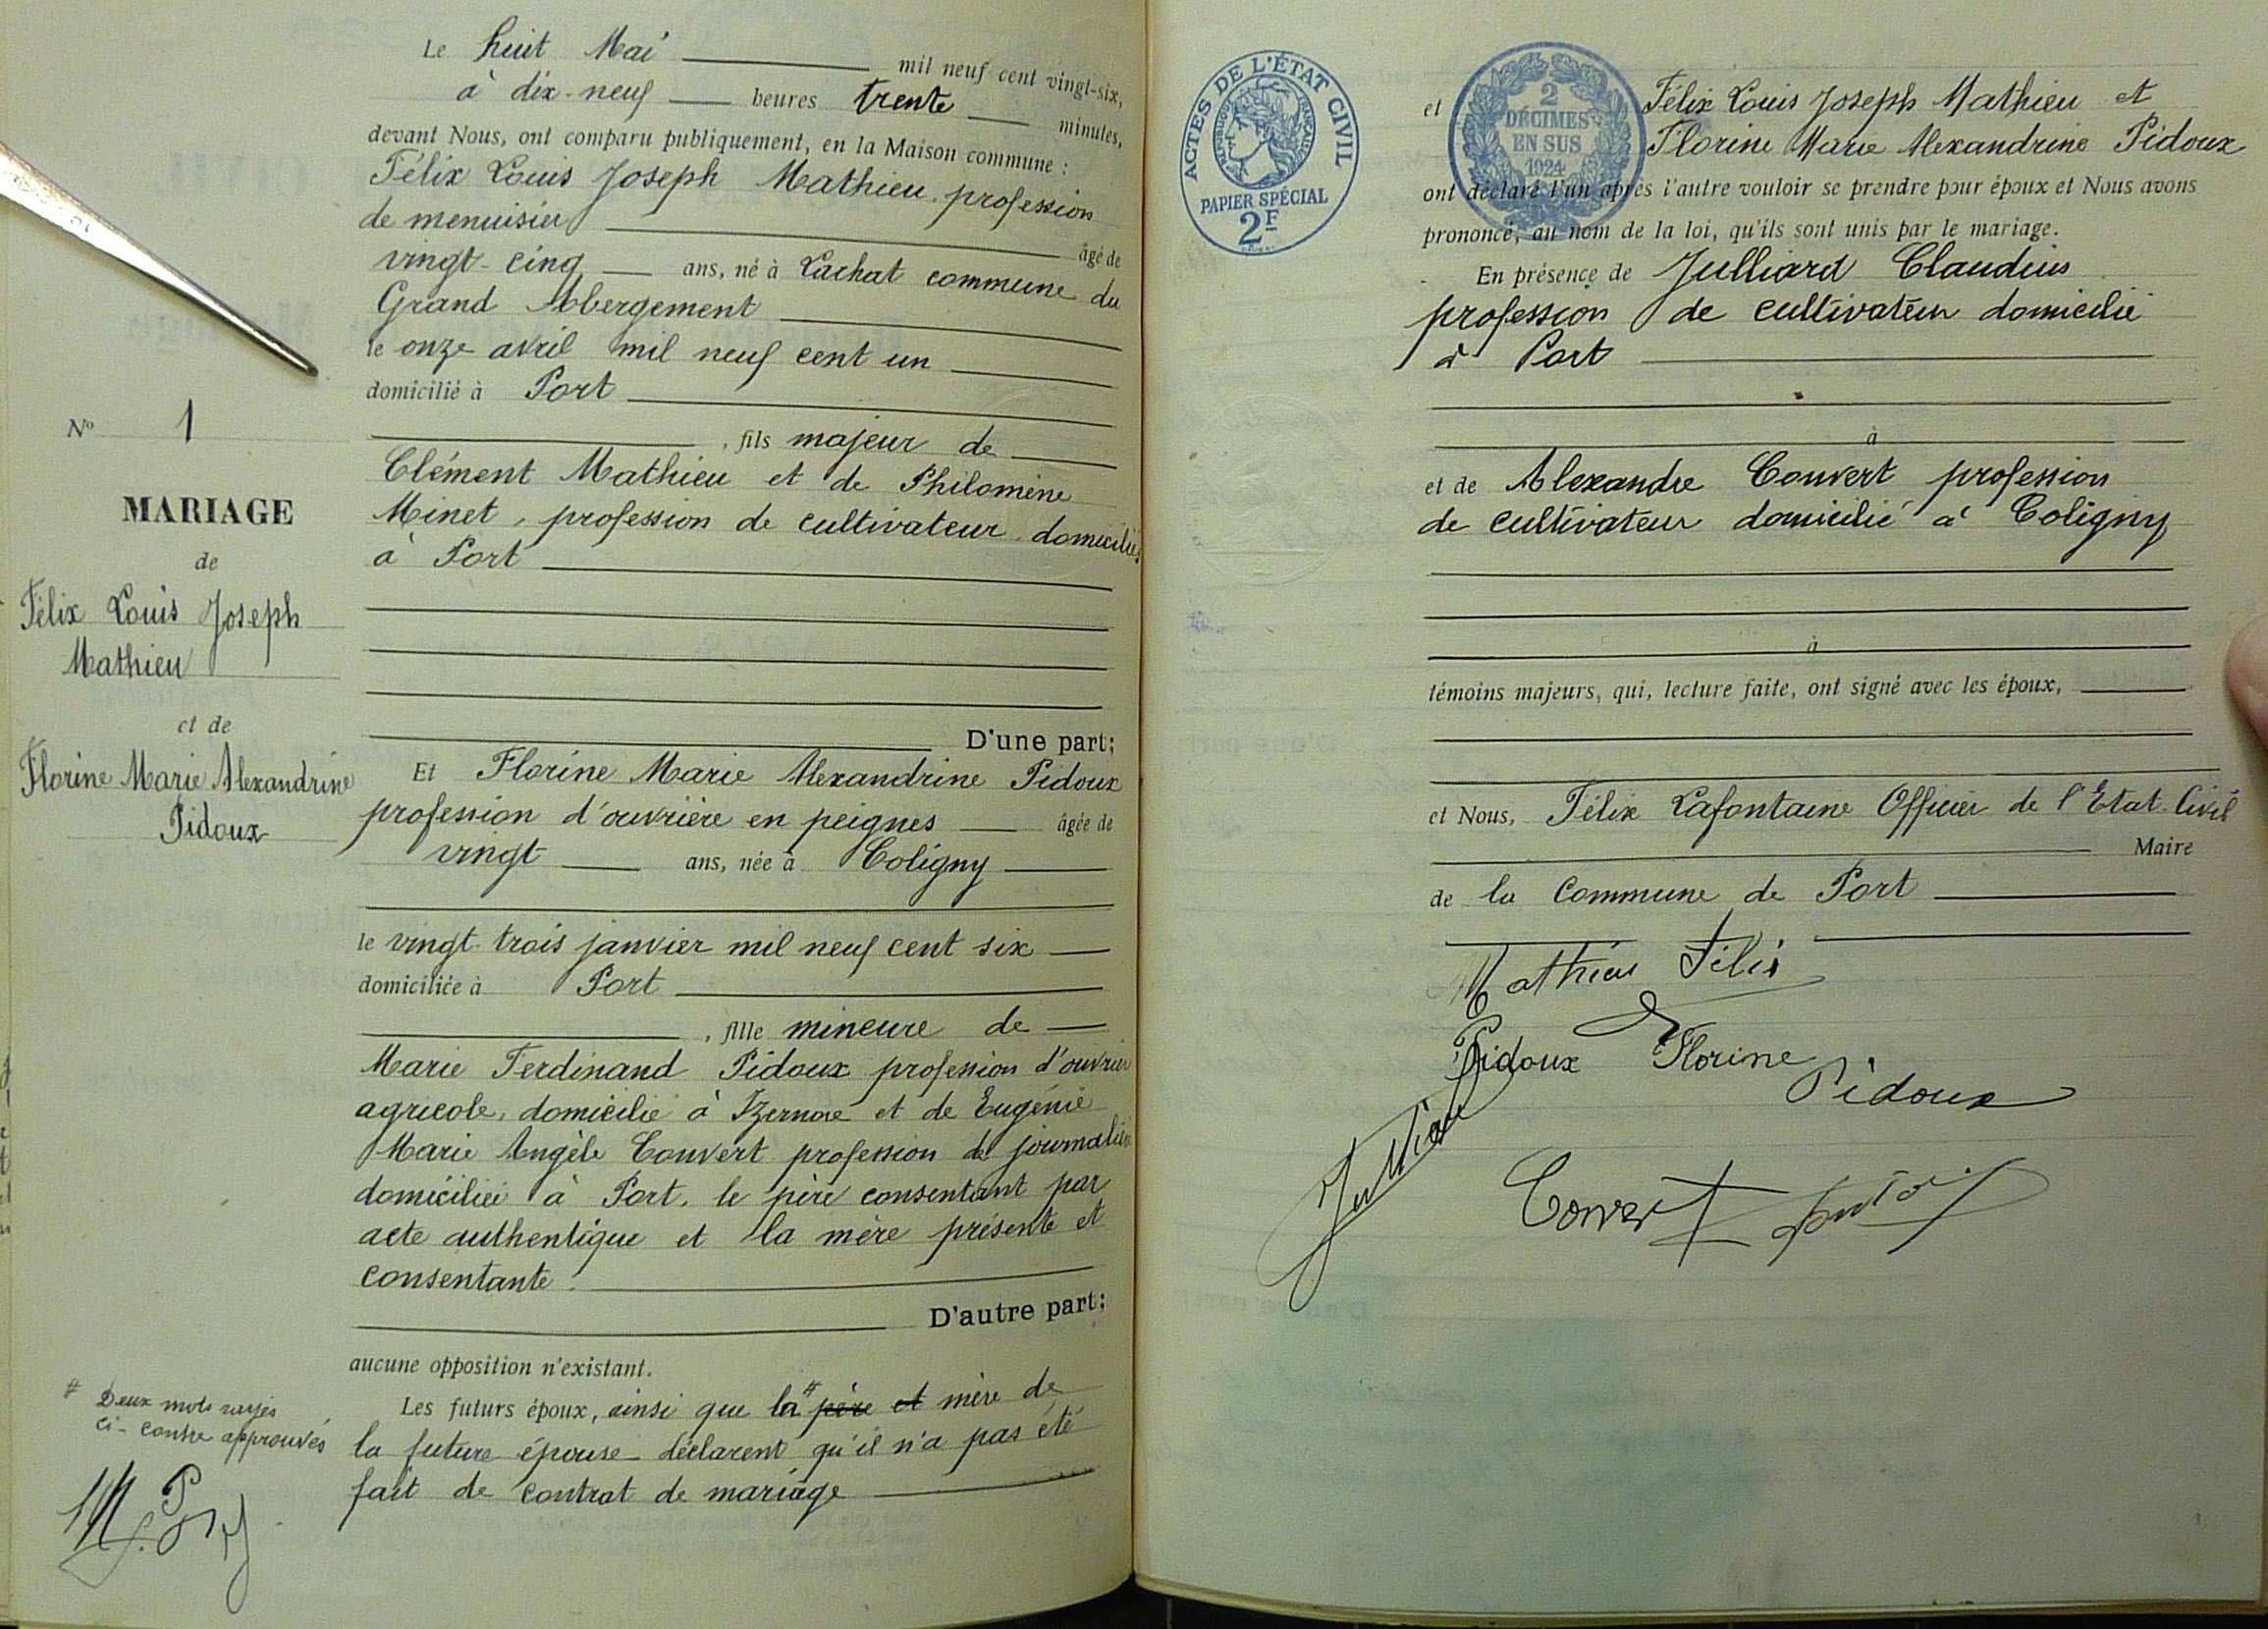 Le huit Mai mil neuf cent vingt-six,
à dix-neuf heures trente minutes,
devant Nous, ont comparu publiquement, en la Maison commune :
Félix Louis Joseph Mathieu, profession
de menuisier âgé de
vingt-cinq ans, né à Lachat commune du
Grand Abergement
le onze avril mil neuf cent un
domicilié à Port
, fils majeur de
Clément Mathieu et de Philomène
Minet, profession de cultivateur domiciliés
à Port
D'une part;
Et Florine Marie Alexandrine Pidoux
profession d'ouvrière en peignes âgée de
vingt ans, née à Coligny
le vingt-trois janvier mil neuf cent six
domiciliée à Port
, fille mineure de
Marie Ferdinand Pidoux profession d'ouvrier
agricole, domicilié à Izernore et de Eugénie
Marie Angèle Convert profession de journalière
domiciliée à Port, le père consentant par
acte authentique et la mère présente et
consentante.
D'autre part;
aucune opposition n'existant.
Les futurs époux, ainsi que la # père et mère de
la future épouse déclarent qu'il n'a pas été
fait de contrat de mariage
No 1
MARIAGE
de
Félix Louis Joseph
Mathieu
et de
Florine Marie Alexandrine
Pidoux
# Deux mots rayés
ci-contre approuvés
ACTES DE L'ÉTAT CIVIL
RÉPUBLIQUE FRANÇAISE
PAPIER SPÉCIAL
2F
2
DÉCIMES
EN SUS
1924
et Félix Louis Joseph Mathieu et
Florine Marie Alexandrine Pidoux
ont déclaré l'un après l'autre vouloir se prendre pour époux et Nous avons
prononcé, au nom de la loi, qu'ils sont unis par le mariage.
En présence de Julliard Claudius
profession de cultivateur domicilié
à Port
à
et de Alexandre Convert profession
de cultivateur domicilié à Coligny
à
témoins majeurs, qui, lecture faite, ont signé avec les époux,
et Nous, Félix Lafontaine Officier de l'Etat-Civil
Maire
de la Commune de Port
Mathieu Félix
Pidoux Florine
Pidoux
Julliard
Convert